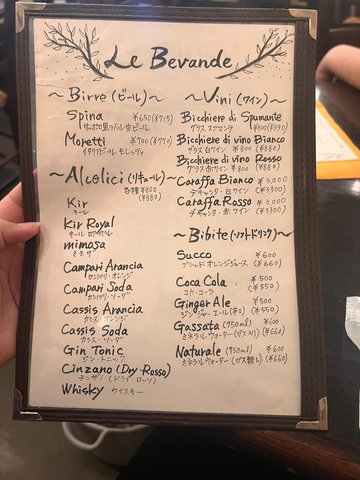 Le Bevande
~Birre (ビール)~
Spina ¥650(¥715)
サッポロ黒ラベル生ビール
Moretti ¥700(¥770)
イタリアビール モレッティ
~Alcolici (リキュール)~
各種 ¥800
(¥880)
Kir
キール
Kir Royal
キール ロワイヤル
mimosa
ミモザ
Campari Arancia
カンパリ・オレンジ
Campari Soda
カンパリ・ソーダ
Cassis Arancia
カシス・オレンジ
Cassis Soda
カシス・ソーダ
Gin Tonic
ジン・トニック
Cinzano (Dry Rosso)
チンザノ (ドライ・ロッソ)
Whisky ウイスキー
~Vini (ワイン)~
Bicchiere di Spumante
グラス スプマンテ
Bicchiere di vino Bianco
グラス 白ワイン ¥800 (¥880)
Bicchiere di vino Rosso
グラス 赤ワイン ¥800 (¥880)
Caraffa Bianco ¥3,000
デキャンタ・白ワイン (¥3300)
Caraffa Rosso ¥3,000
デキャンタ・赤ワイン (¥3300)
~Bibite (ソフトドリンク)~
Succo ¥600
ブラッドオレンジジュース (¥660)
Coca Cola ¥500
コカ・コーラ (¥550)
Ginger Ale ¥500
ジンジャーエール(辛口) (¥550)
Gassata (750ml) ¥600
ミネラルウォーター(ガス入り) (¥660)
Naturale (750ml) ¥600
ミネラルウォーター(ガス無し) (¥660)